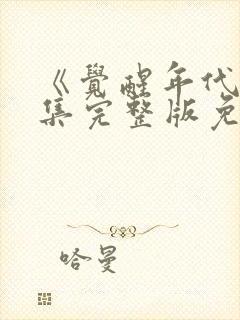 《覺醒年代
集完整版免
哈曼